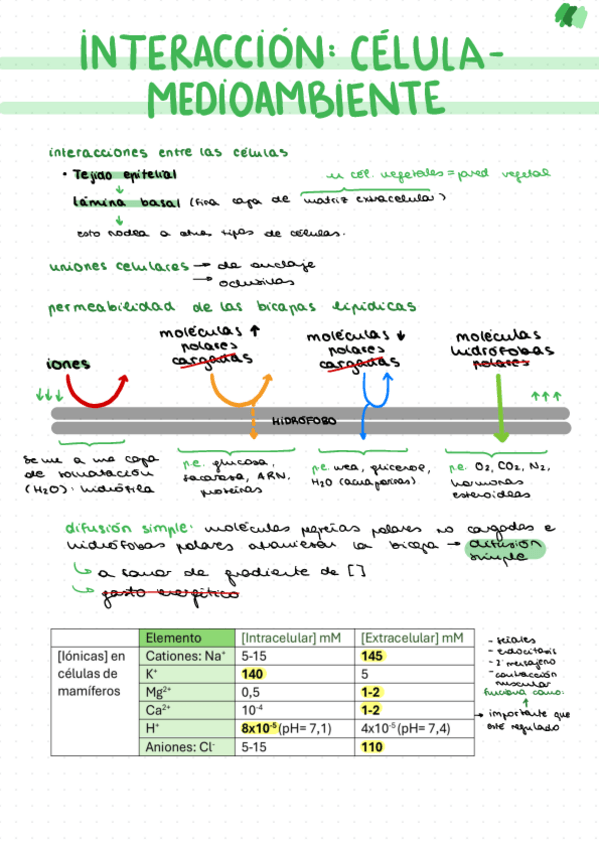 INTERACCIÓN: CÉLULA-
MEDIOAMBIENTE
interacciones entre las células
• Tejido epitelial
en cél. vegetales = pared vegetal
lámina basal (fina capa de matriz extracelular)
esto rodea a otros tipos de células.
uniones celulares → de anclaje
→ oclusivas
permeabilidad de las bicapas lipídicas
iones
moléculas ↑
polares
cargadas
moléculas ↓
polares
cargadas
moléculas
hidrófobas
polares
↓↓↓
↑↑↑
HIDRÓFOBO
se une a una capa
de solvatación
(H2O): hidrófila
p.e. glucosa,
sacarosa, ARN,
proteínas
p.e. urea, glicerol,
H2O (acuaporinas)
p.e. O2, CO2, N2,
hormonas
esteroideas
difusión simple: moléculas pequeñas polares no cargadas e
hidrófobas polares atraviesan la bicapa → difusión
simple
a favor de gradiente de []
gasto energético
Elemento [Intracelular] mM [Extracelular] mM
[Iónicas] en
células de
mamíferos
Cationes: Na⁺ 5-15 145
K⁺ 140 5
Mg²⁺ 0,5 1-2
Ca²⁺ 10⁻⁴ 1-2
H⁺ 8x10⁻⁵ (pH= 7,1) 4x10⁻⁵ (pH= 7,4)
Aniones: Cl⁻ 5-15 110
- señales
- endocitosis
- 2º mensajero
- contracción
muscular
funciona como:
↑
→ importante que
esté regulado